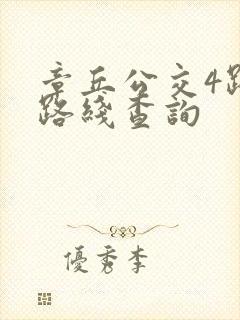 章丘公交4路
路綫查詢
優秀李